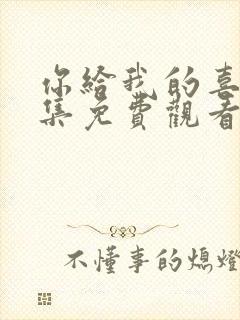 你給我的喜
集免費觀看
不懂事的熄燈